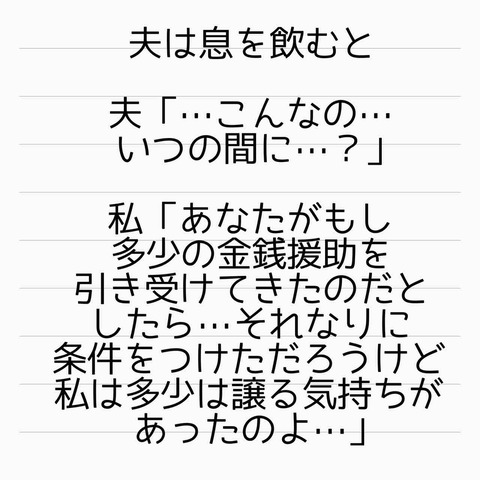 夫は息を飲むと
夫「…こんなの…
いつの間に…？」
私「あなたがもし
多少の金銭援助を
引き受けてきたのだと
したら…それなりに
条件をつけただろうけど
私は多少は譲る気持ちが
あったのよ…」